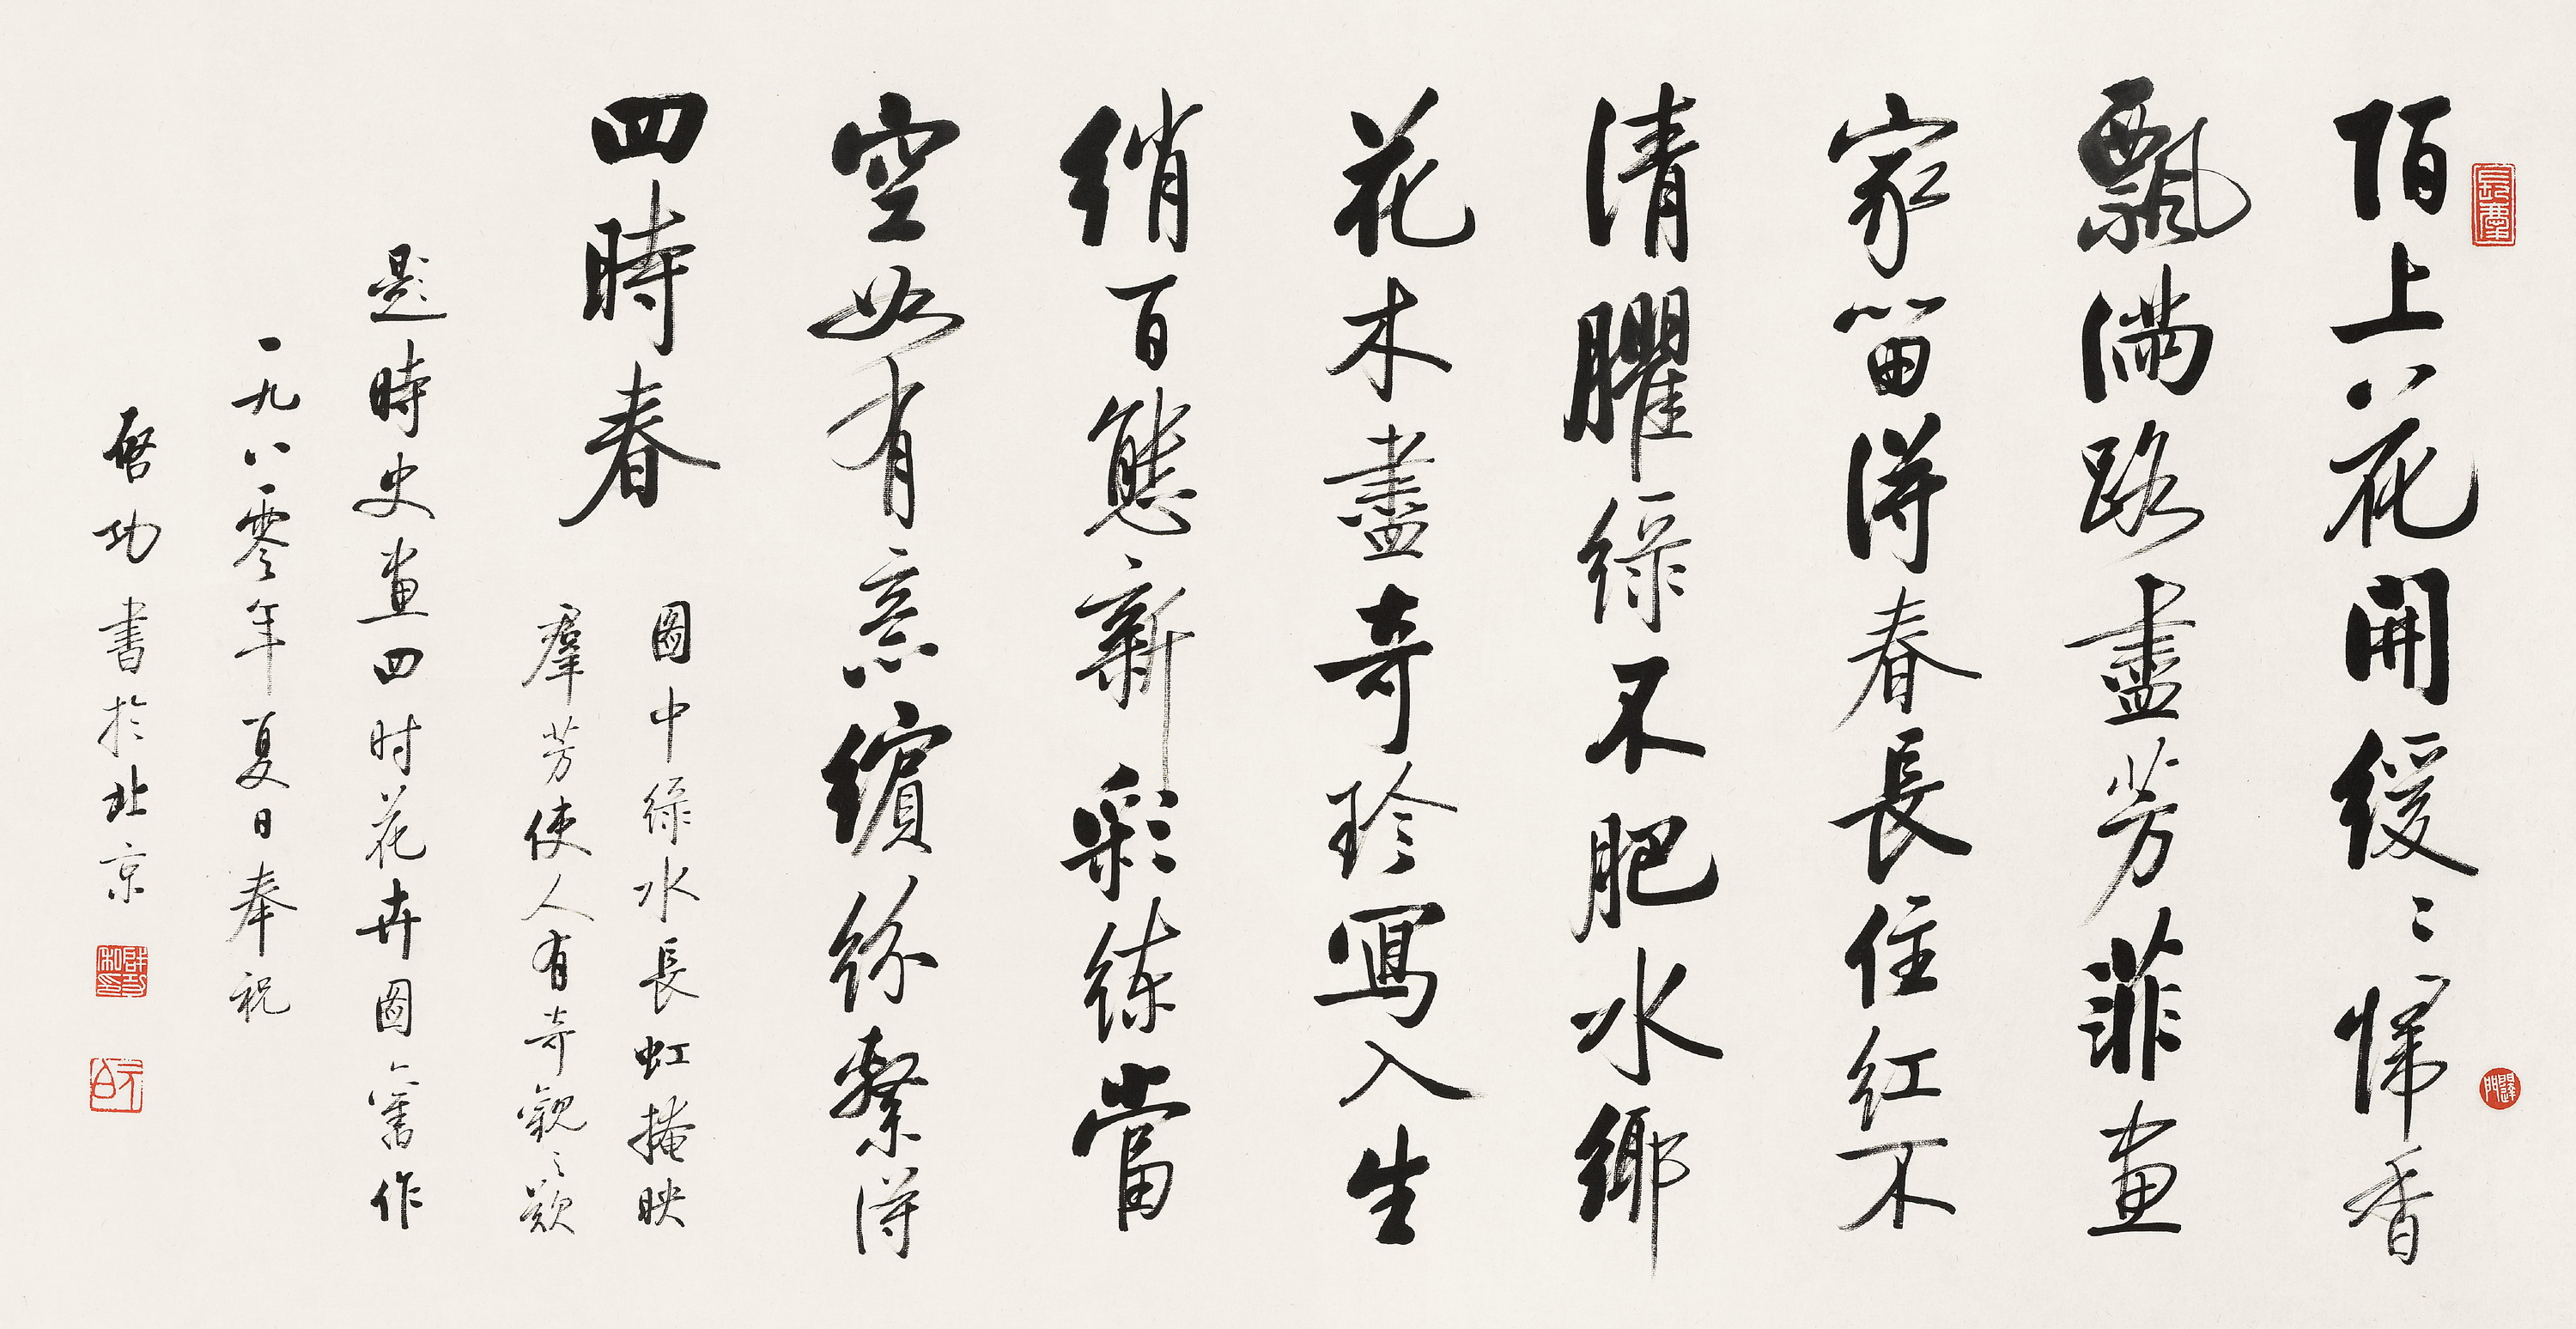 陌上花開緩〻歸香
飄滿路盡芳菲畫
家留得春長住紅不
清臞綠不肥水鄉
花木盡奇珍寫入生
綃百態新彩練當
空如有意繽紛繫得
四時春
圖中綠水長虹掩映
羣芳使人有奇觀之歎
題時史畫四时花卉圖舊作
一九八零年夏日奉祝
啓功書於北京
啟功私印
元白